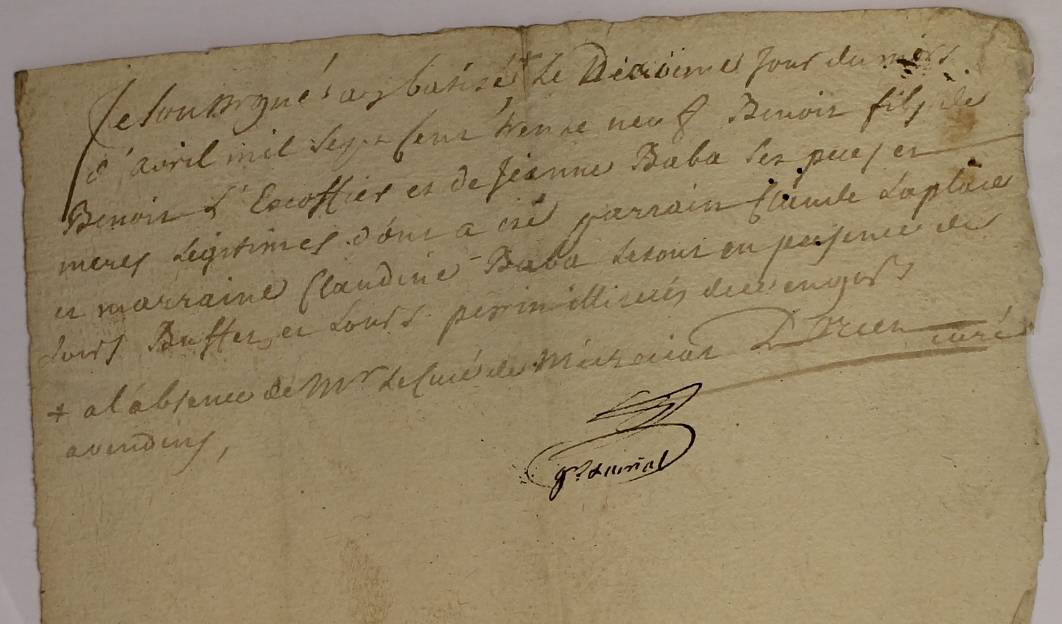 Je soussigné ay batisé + le Dixieme jour du mois
d'avril mil sept cent trente neuf Benoit fils de
Benoit L'Escoffier et de Jeanne Baba ses peres et
meres legitimes dont a été parrain Claude Laplace
et marraine Claudine Baba le tout en presence de
Louis Buffet et Louis perrin illiterés de enquis
+ a l'absence de Mr le Curé de curé